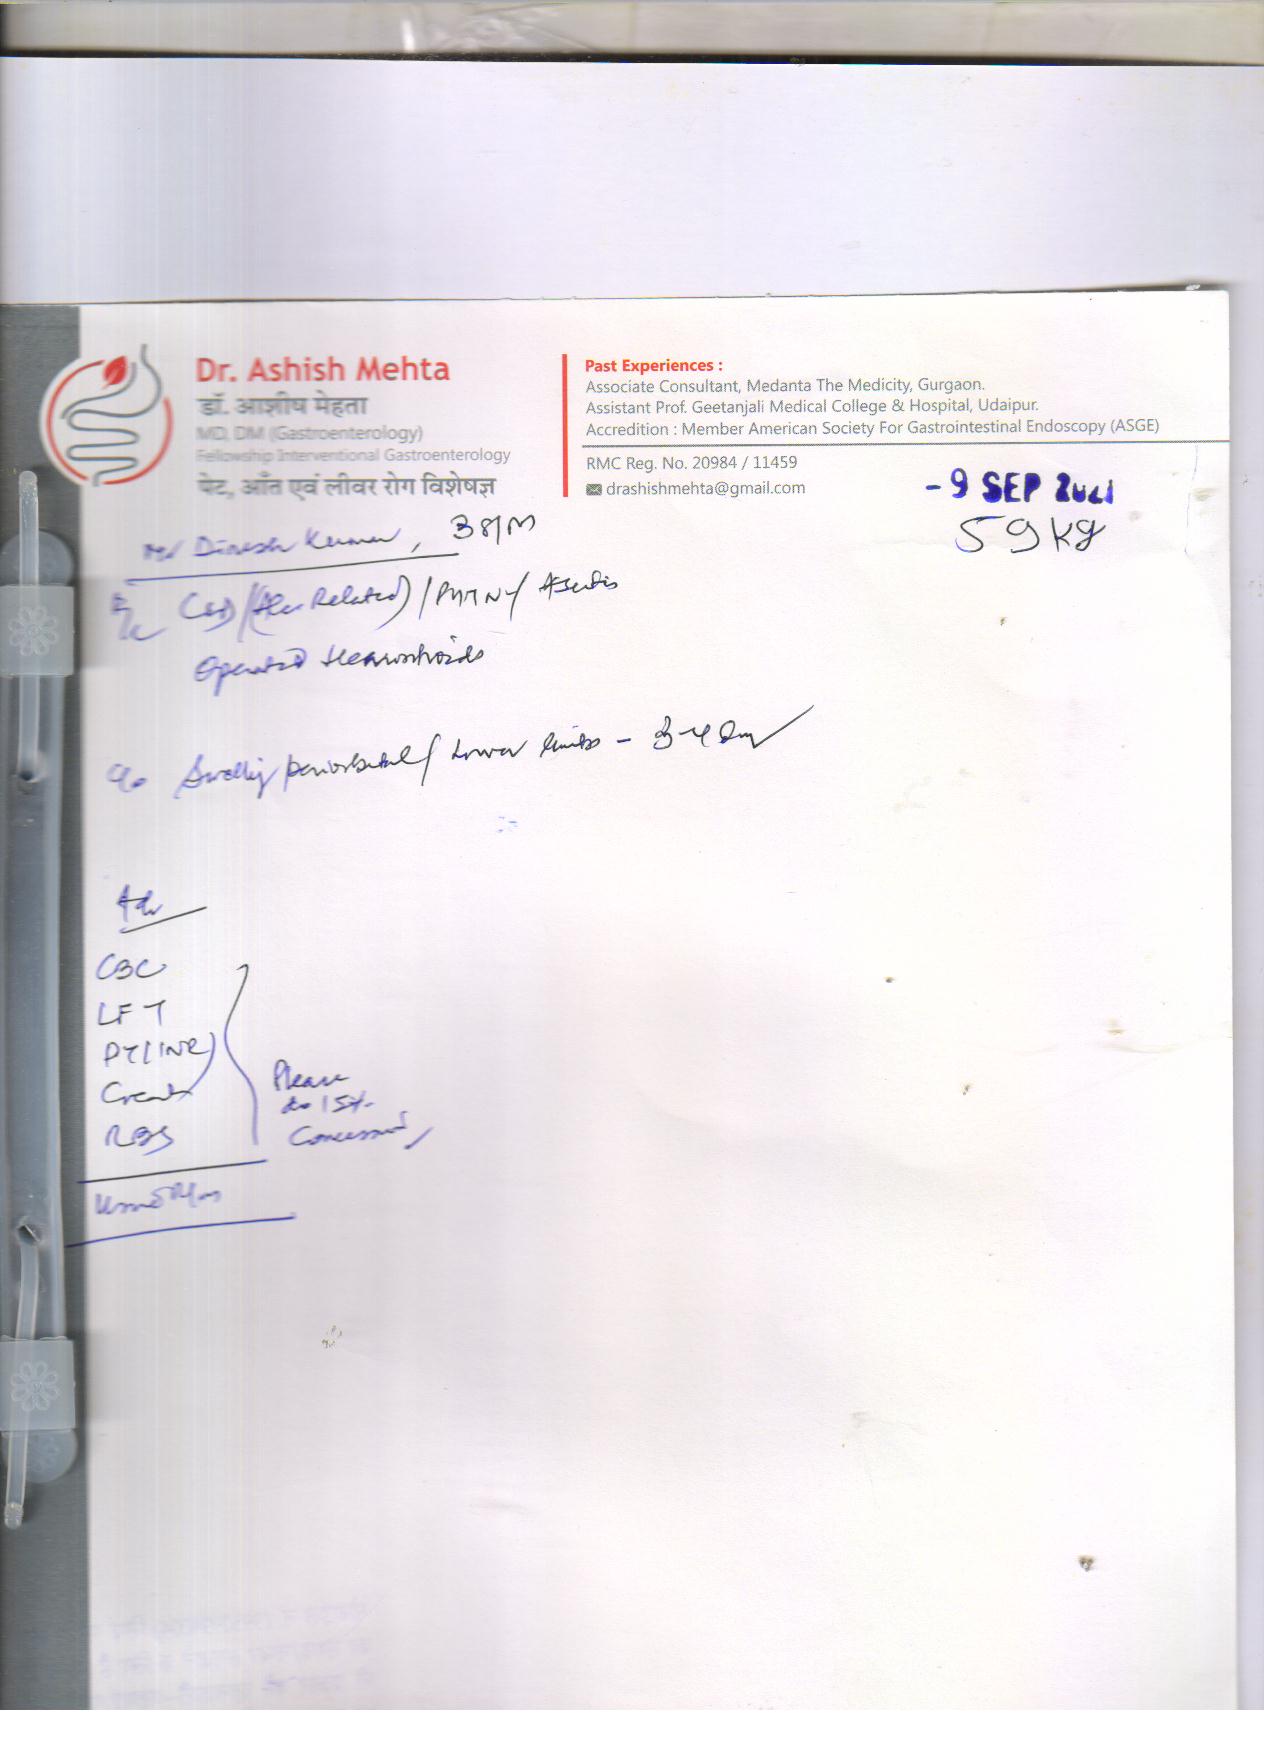 Dr. Ashish Mehta
डॉ. आशीष मेहता
MD, DM (Gastroenterology)
Fellowship Interventional Gastroenterology
पेट, आँत एवं लीवर रोग विशेषज्ञ
Past Experiences :
Associate Consultant, Medanta The Medicity, Gurgaon.
Assistant Prof. Geetanjali Medical College & Hospital, Udaipur.
Accredition : Member American Society For Gastrointestinal Endoscopy (ASGE)
RMC Reg. No. 20984 / 11459
drashishmehta@gmail.com
- 9 SEP 2021
59 kg
Mr Dinesh Kumar, 38/M
Related) / PHTN / Ascites
Operated Hemorrhoids
c/o Swelling periorbital / Lower limbs - 3-4 Day
Adv
CBC
LFT
PT/INR
Creat
RBS
Please
do 15%
Concession